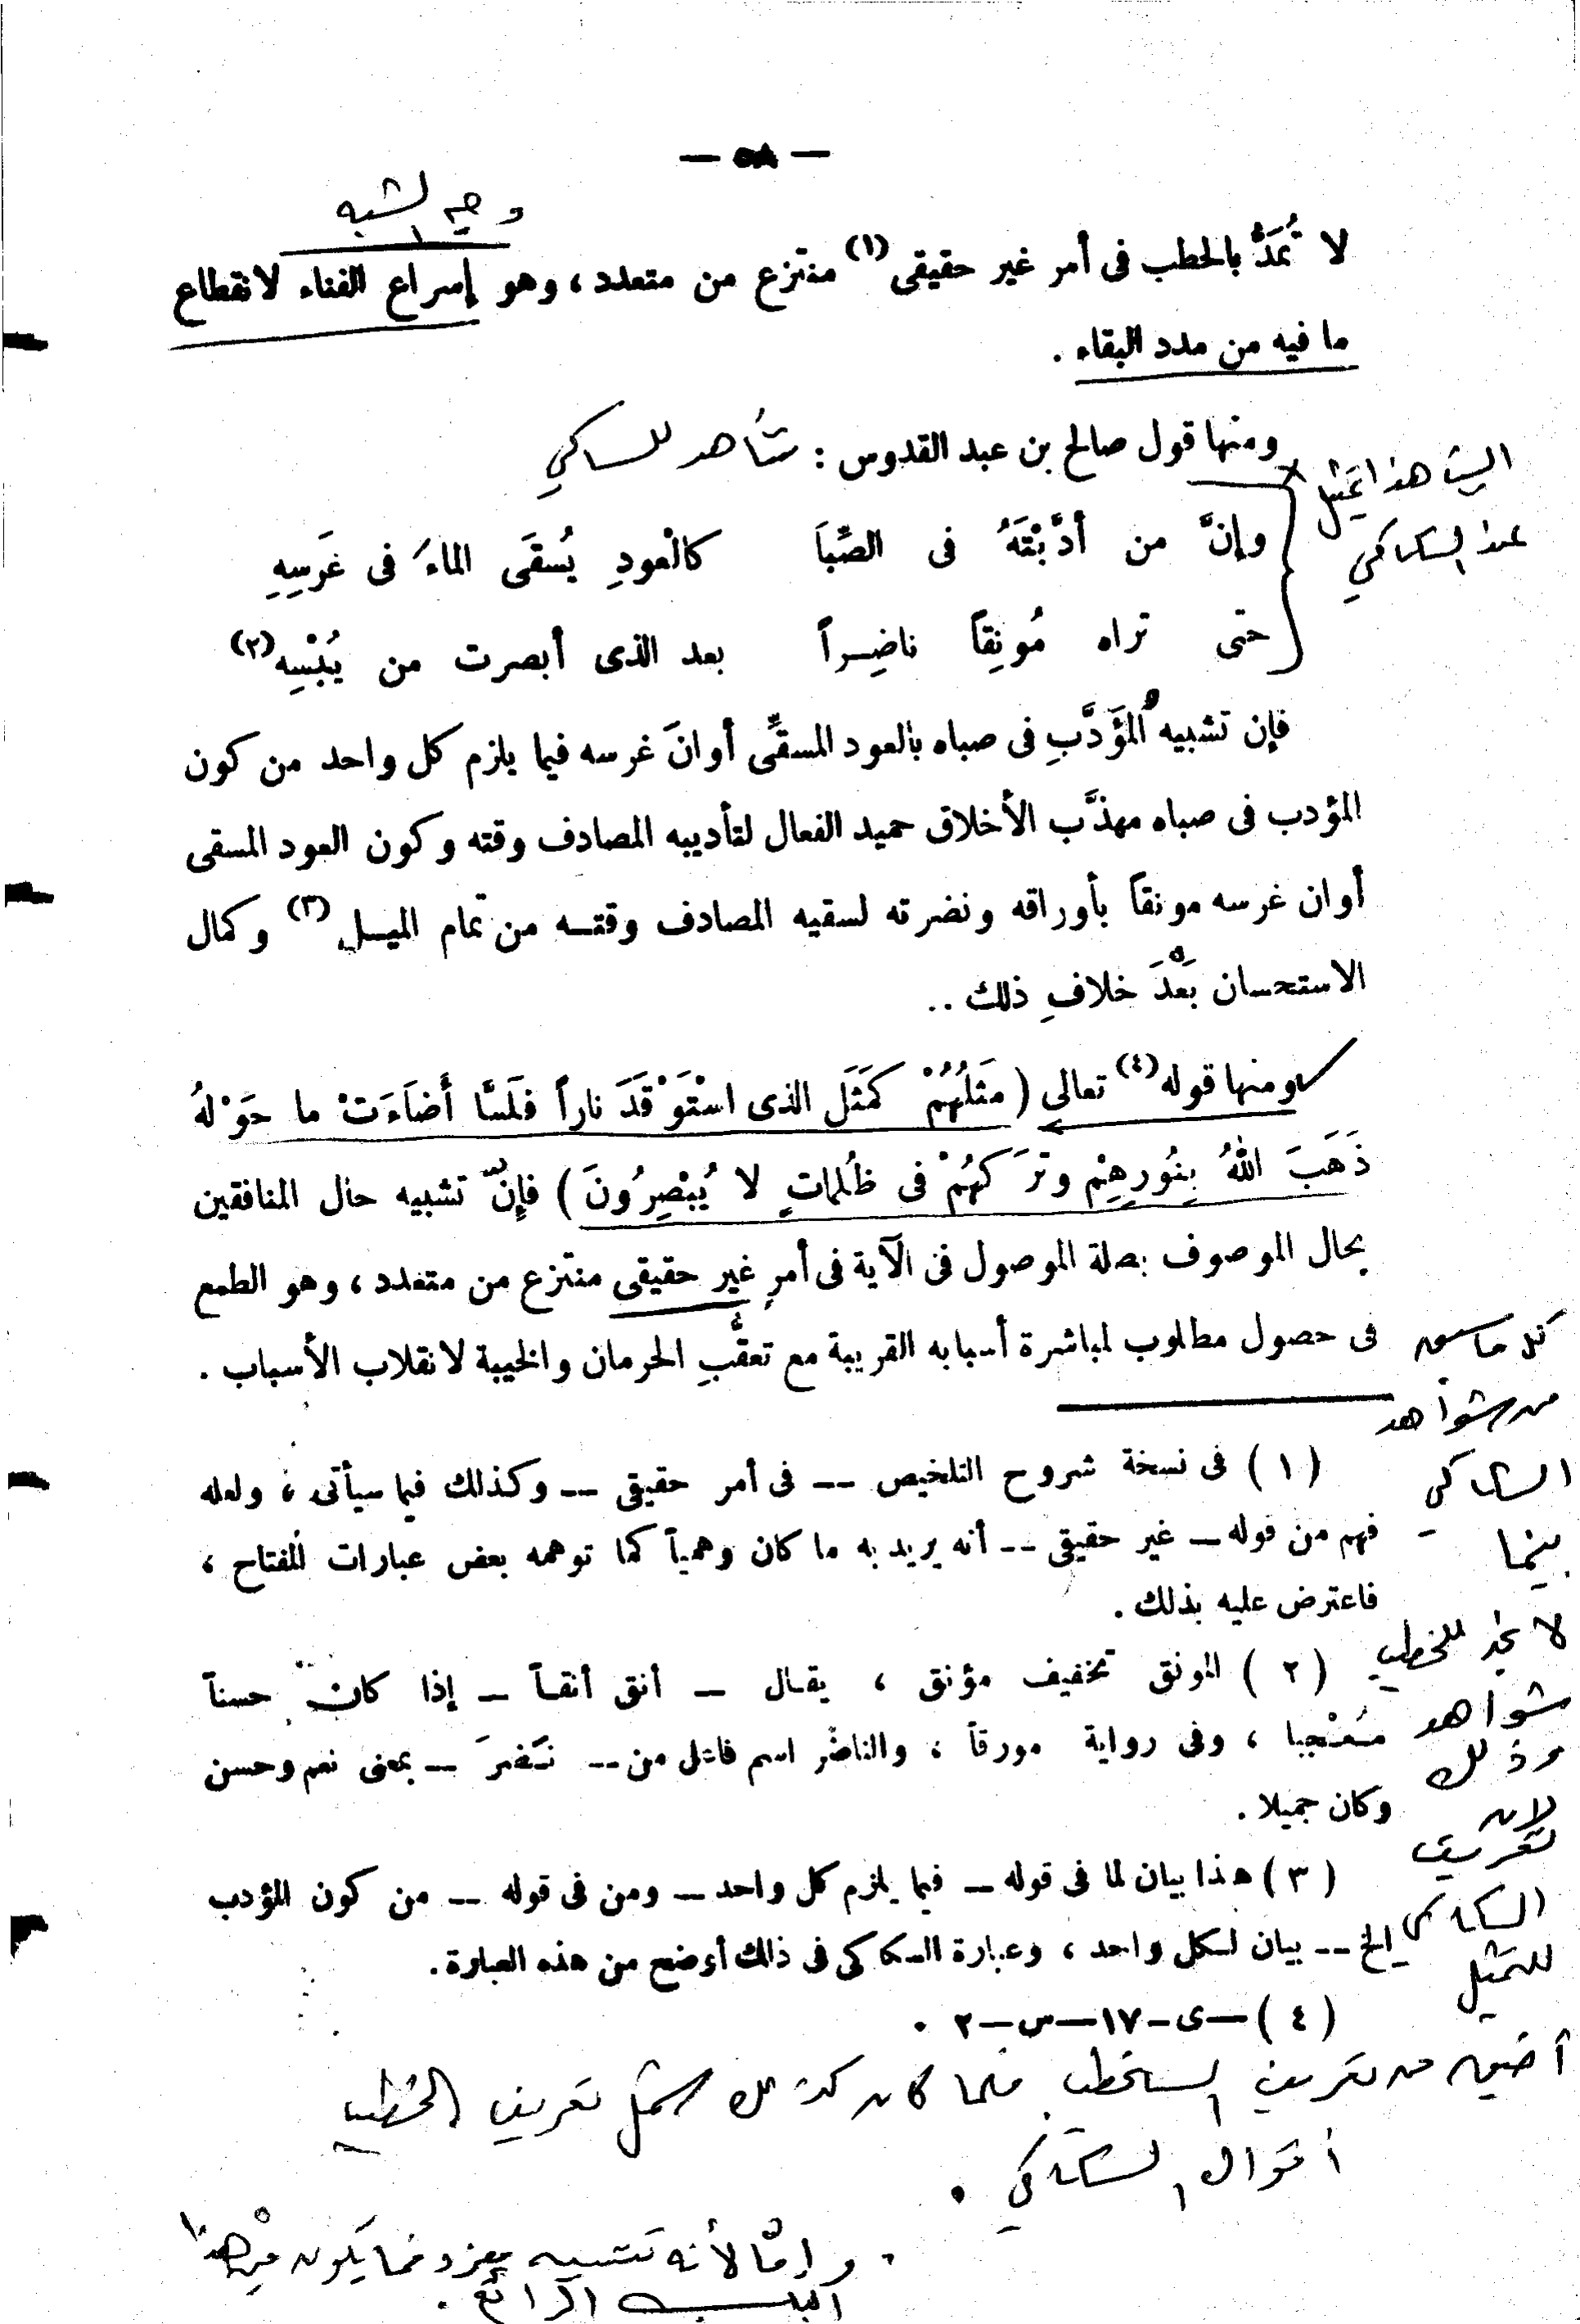 — ٥٨ —
وجه الشبه
لا تُمَدُّ بالحطب فى أمر غير حقيقى (١) منتزع من متعدد ، وهو إسراع الفناء لانقطاع
ما فيه من مدد البقاء .
ومنها قول صالح بن عبد القدوس : شاهد للسكاكي
البيت هذا تمثيل
عند السكاكي
وإنَّ من أدَّبْتَهُ فى الصِّبَا كالْعودِ يُسقَى الماءَ فى غَرسِهِ
حتى تراه مُونِقاً ناضِراً بعد الذى أبصرت من يُبْسِه (٢)
فإن تشبيه المُؤَدَّبِ فى صباه بالعود المسقىِّ أوانَ غرسه فيما يلزم كل واحد من كون
المؤدب فى صباه مهذَّب الأخلاق حميد الفعال لتأديبه المصادف وقته وكون العود المسقى
أوان غرسه مونقاً بأوراقه ونضرته لسقيه المصادف وقتـه من تمام الميـل (٣) وكمال
الاستحسان بَعْدَ خلافِ ذلك ..
ومنها قوله (٤) تعالى ( مَثَلُهُمْ كَمَثَلِ الذى اسْتَوْقَدَ ناراً فَلَمَّا أَضَاءَتْ ما حَوْلهُ
ذَهَبَ اللهُ بِنُورِهِمْ وتَرَكهُمْ فى ظُلماتٍ لا يُبْصِرُونَ ) فإنّ تشبيه حال المنافقين
بحال الموصوف بصلة الموصول فى الآية فى أمرٍ غير حقيقى منتزع من متعدد ، وهو الطمع
فى حصول مطلوب لمباشرة أسبابه القريبة مع تعقُّبِ الحرمان والخيبة لانقلاب الأسباب .
كل ما سبق
من شواهد
السكاكي
بينما
لا نجد للخطيب
شواهد
وذلك
لأن
تعريف
السكاكي
للتمثيل
( ١ ) فى نسخة شروح التلخيص -- فى أمر حقيقى -- وكذلك فيما سيأتى ، ولعله
فهم من قوله — غير حقيقى -- أنه يريد به ما كان وهمياً كما توهمه بعض عبارات المفتاح ،
فاعترض عليه بذلك .
( ٢ ) المونق تخفيف مؤنق ، يقـال — أنق أنقـاً — إذا كان حسناً
مُعْجِبا ، وفى رواية مورقاً ، والناضر اسم فاعل من -- نَضَرَ -- بمعنى نعم وحسن
وكان جميلا .
( ٣ ) هذا بيان لما فى قوله — فيما يلزم كل واحد — ومن فى قوله -- من كون المؤدب
إلخ -- بيان لكل واحد ، وعبارة السكاكى فى ذلك أوضح من هذه العبارة .
( ٤ ) —ى-١٧—س—٢ .
أضيق من تعريف الخطيب فلما كان كذلك شمل تعريف الخطيب
أقوال السكاكي .
وإمّا لأنه تشبيه مفرد فما يكون من هذا